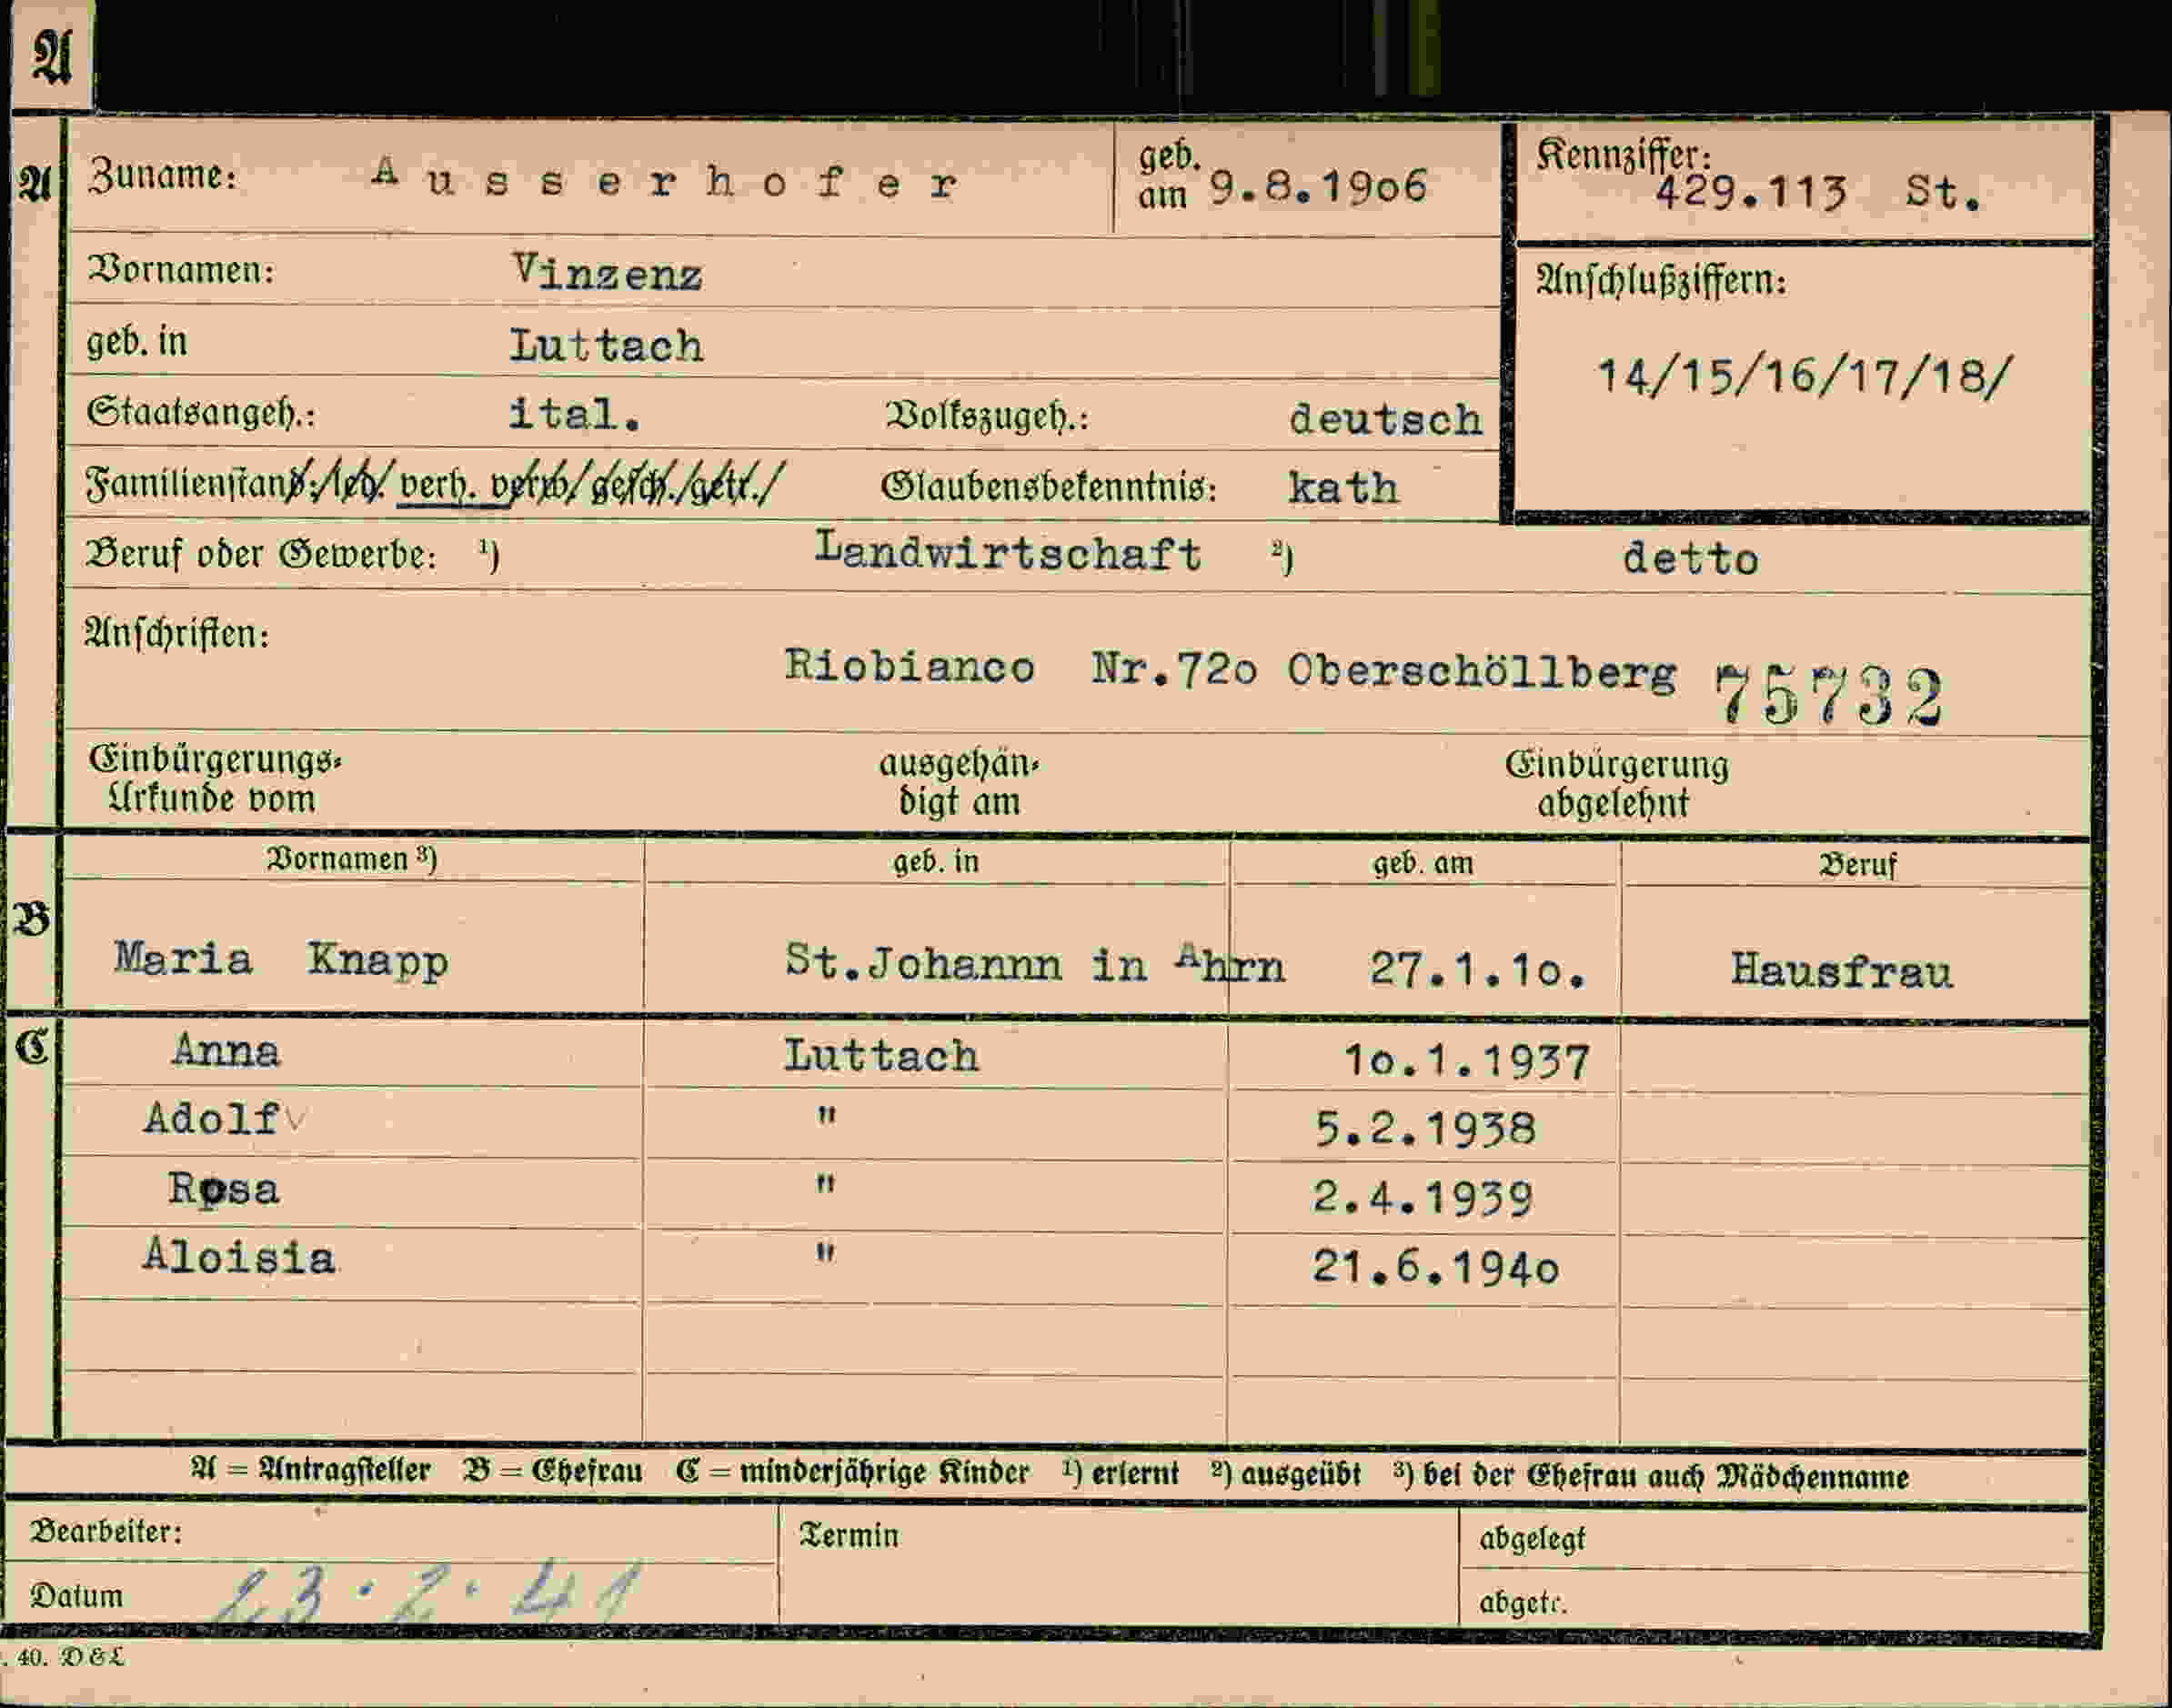 A
A Zuname: Ausserhofer geb. am 9.8.19o6 Kennziffer: 429.113 St.
Vornamen: Vinzenz Anschlußziffern:
geb. in Luttach 14/15/16/17/18/
Staatsangeh.: ital. Volkszugeh.: deutsch
Familienstand: led. verh. verw. gesch./getr./ Glaubensbekenntnis: kath
Beruf oder Gewerbe: ¹) Landwirtschaft ²) detto
Anschriften:
Riobianco Nr.72o Oberschöllberg 75732
Einbürgerungs- ausgehän- Einbürgerung
Urkunde vom digt am abgelehnt
Vornamen ³) geb. in geb. am Beruf
B Maria Knapp St.Johannn in Ahrn 27.1.1o. Hausfrau
C Anna Luttach 1o.1.1937
Adolf " 5.2.1938
Rosa " 2.4.1939
Aloisia " 21.6.194o
A = Antragsteller B = Ehefrau C = minderjährige Kinder ¹) erlernt ²) ausgeübt ³) bei der Ehefrau auch Mädchenname
Bearbeiter: Termin abgelegt
Datum abgetr.
. 40. D & L